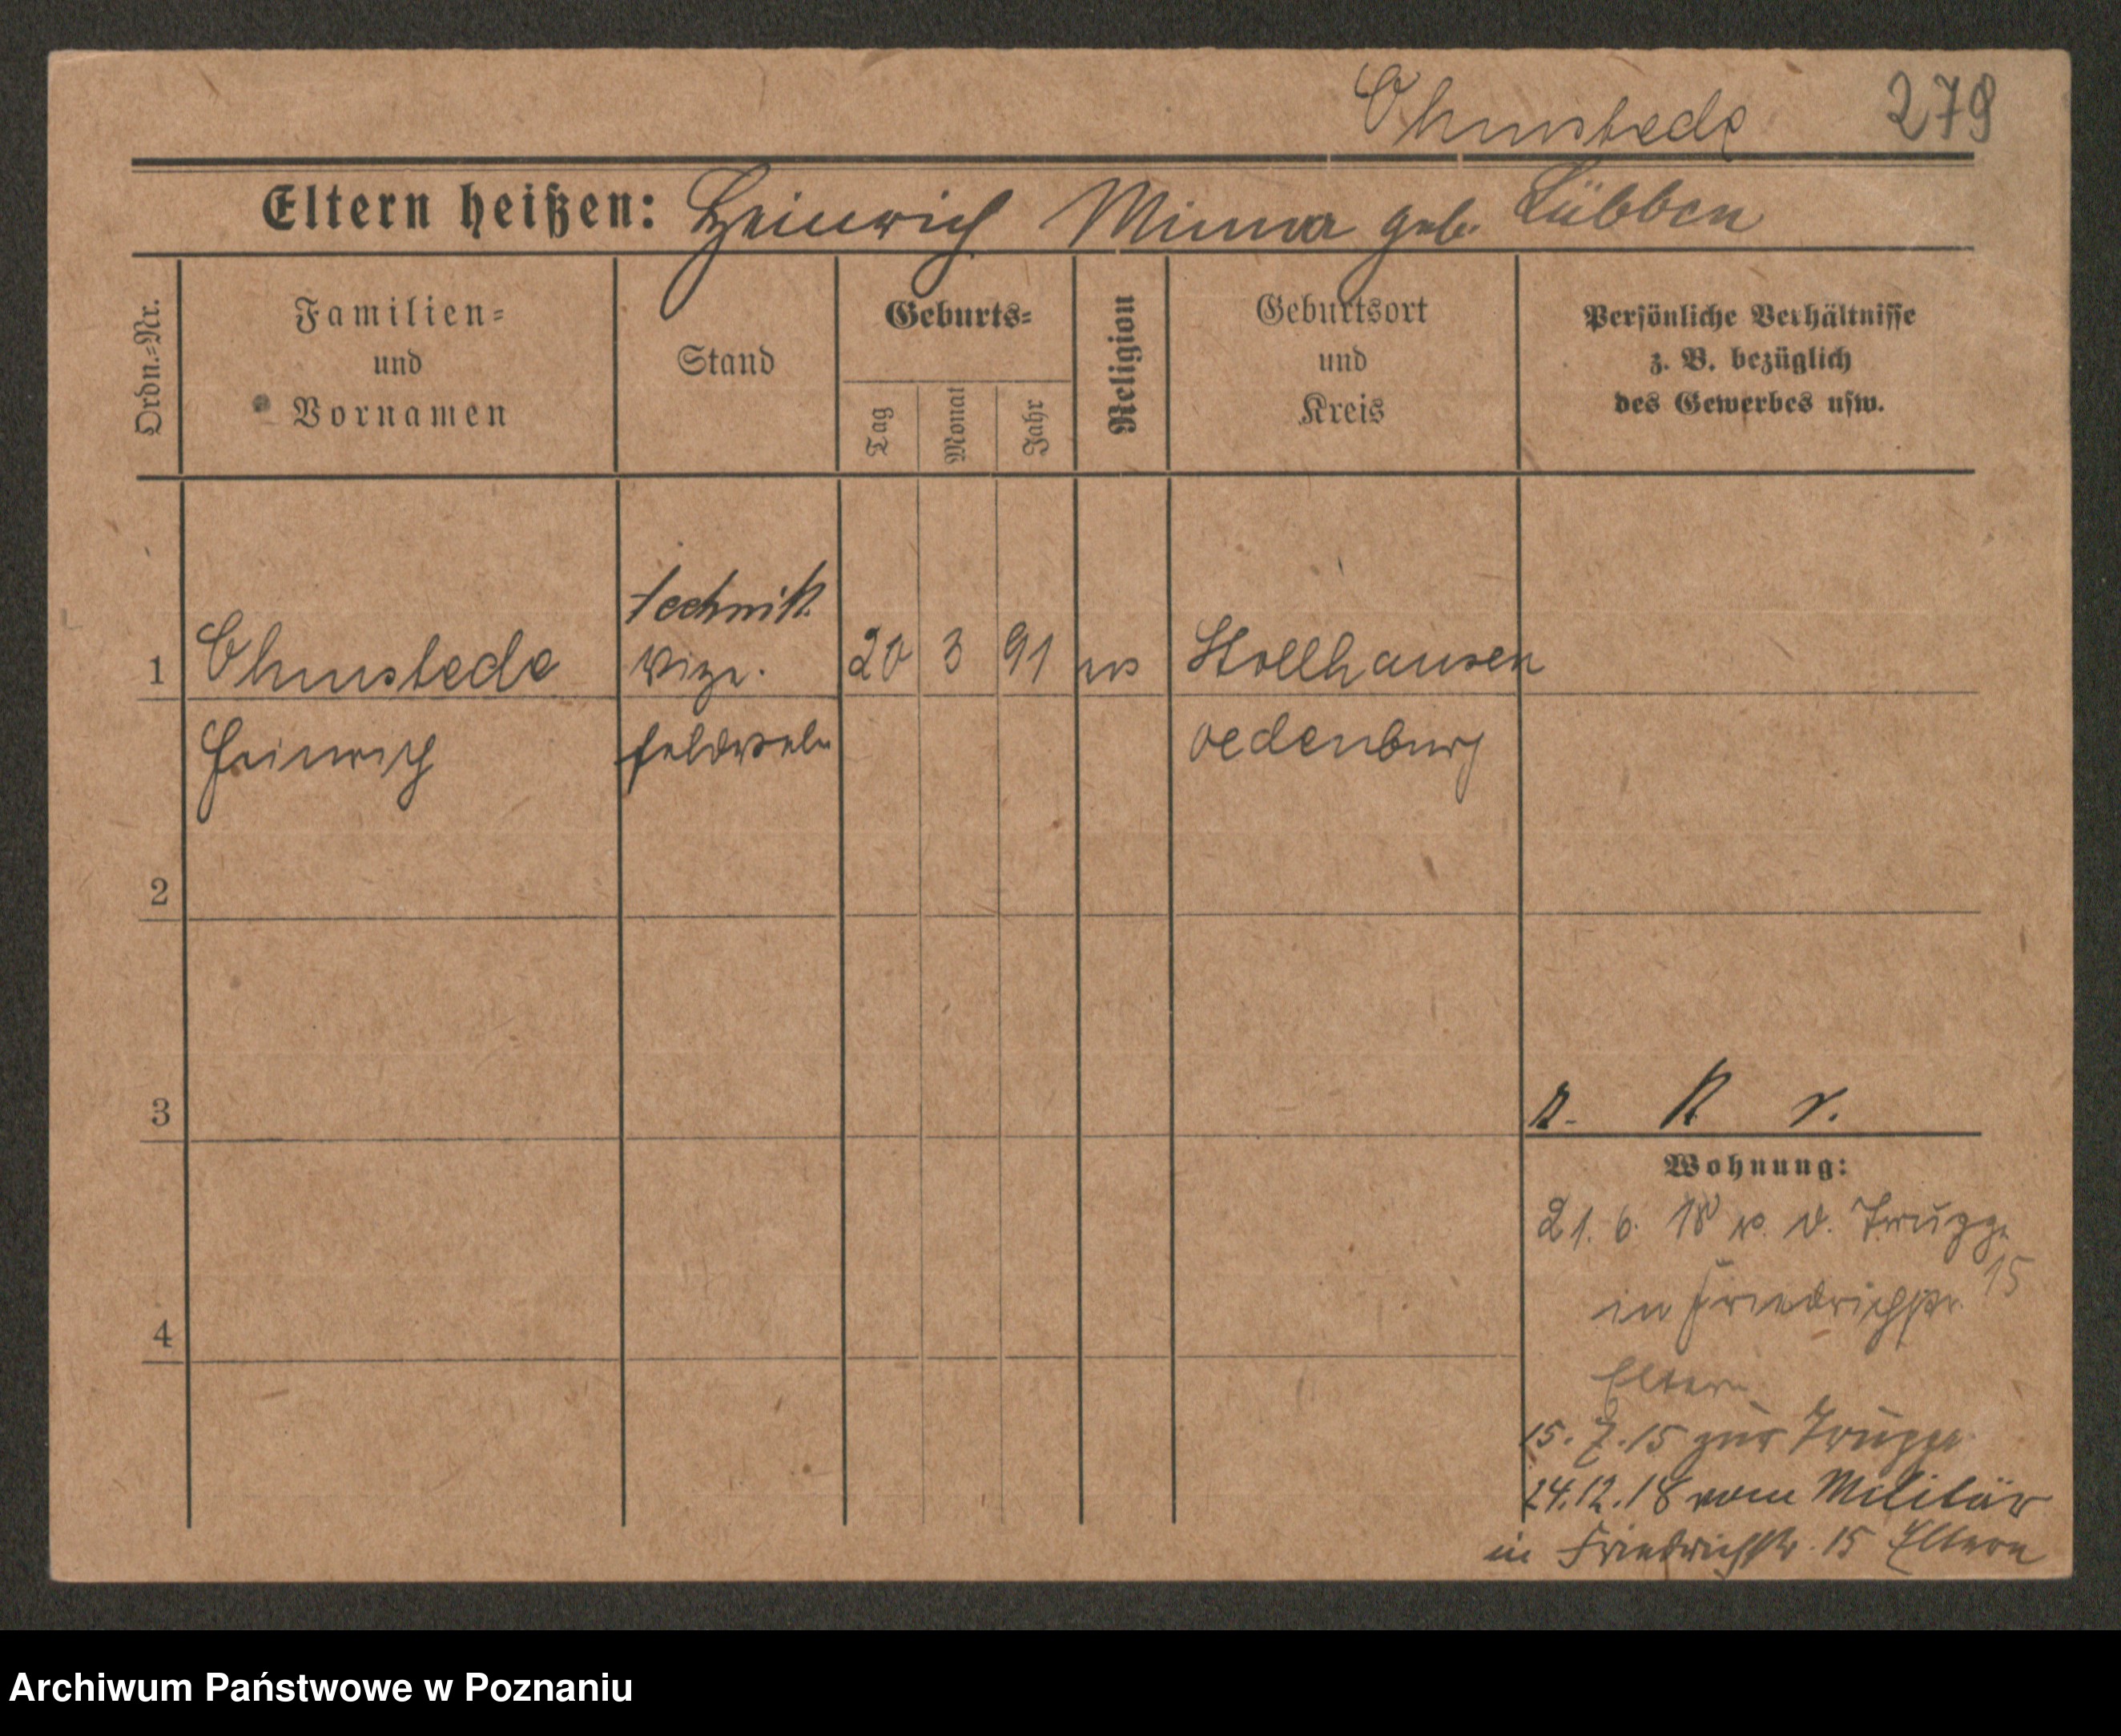 Ohmstede 279
Eltern heißen: Heinrich Minna geb. Lübben
Ordn.=Nr.
Familien=
und
Vornamen
Stand
Geburts=
Tag
Monat
Jahr
Religion
Geburtsort
und
Kreis
Persönliche Verhältnisse
z. B. bezüglich
des Gewerbes usw.
technik
1 Ohmstede Vize. 20 3 91 Stollhausen
Heinrich feldwebe oedenburg
2
3
R. K v.
Wohnung:
21. 6. v. d. Truppe
in Friedrichstr. 15
Eltern
15. 7. 15 zur Truppe
24.12.18 vom Militär
in Friedrichstr. 15 Eltern
4
Archiwum Państwowe w Poznaniu